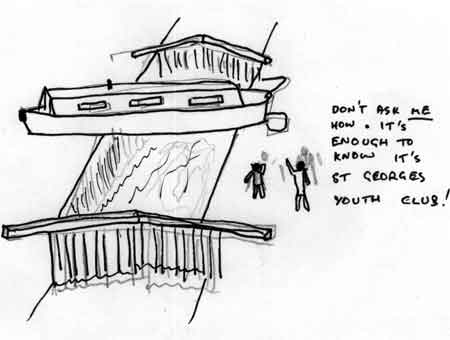 DON'T ASK ME
HOW. IT'S
ENOUGH TO
KNOW IT'S
ST GEORGES
YOUTH CLUB!